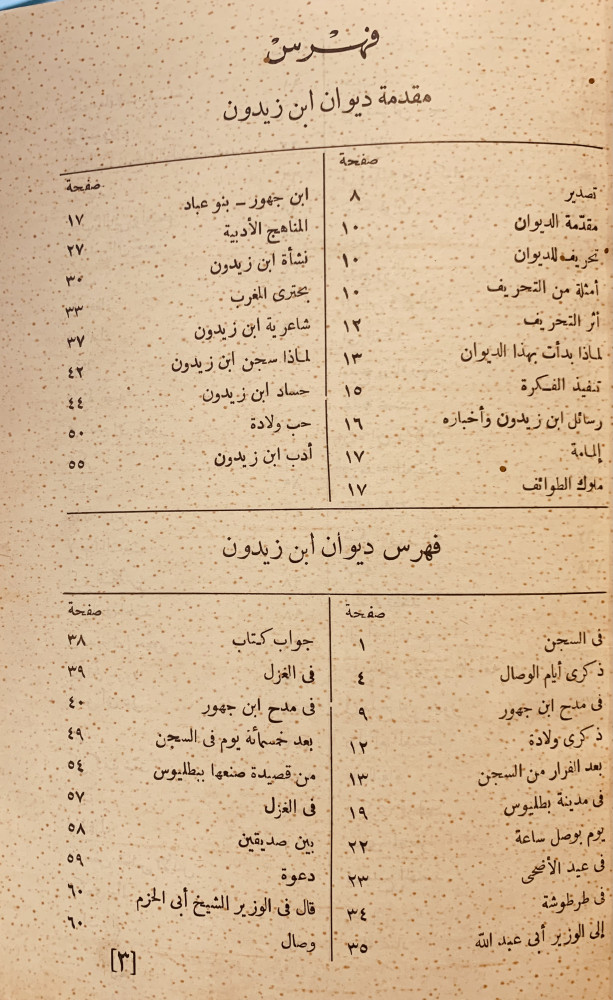 فهرس
مقدمة ديوان ابن زيدون
صفحة
تصدير ٨
مقدّمة الديوان ١٠
تحريف للديوان ١٠
أمثلة من التحريف ١٠
أثر التحريف ١٢
لماذا بدأت بهذا الديوان ١٣
تنفيذ الفكرة ١٥
رسائل ابن زيدون وأخباره ١٦
إلمامة ١٧
ملوك الطوائف ١٧
صفحة
ابن جهور – بنو عباد ١٧
المناهج الأدبية ٢٧
نشأة ابن زيدون ٣٠
بحترى المغرب ٣٣
شاعرية ابن زيدون ٣٧
لماذا سجن ابن زيدون ٤٢
حساد ابن زيدون ٤٤
حب ولادة ٥٠
أدب ابن زيدون ٥٥
فهرس ديوان ابن زيدون
صفحة
فى السجن ١
ذكرى أيام الوصال ٤
فى مدح ابن جهور ٩
ذكرى ولادة ١٢
بعد الفرار من السجن ١٣
فى مدينة بطليوس ١٩
يوم بوصل ساعة ٢٢
فى عيد الأضحى ٢٣
فى طرطوشة ٣٤
إلى الوزير أبى عبد الله ٣٥
صفحة
جواب كتاب ٣٨
فى الغزل ٣٩
فى مدح ابن جهور ٤٠
بعد خمسمائة يوم فى السجن ٤٩
من قصيدة صنعها ببطليوس ٥٤
فى الغزل ٥٧
بين صديقين ٥٨
دعوة ٥٩
قال فى الوزير الشيخ أبى الحزم ٦٠
وصال ٦٠
[٣]